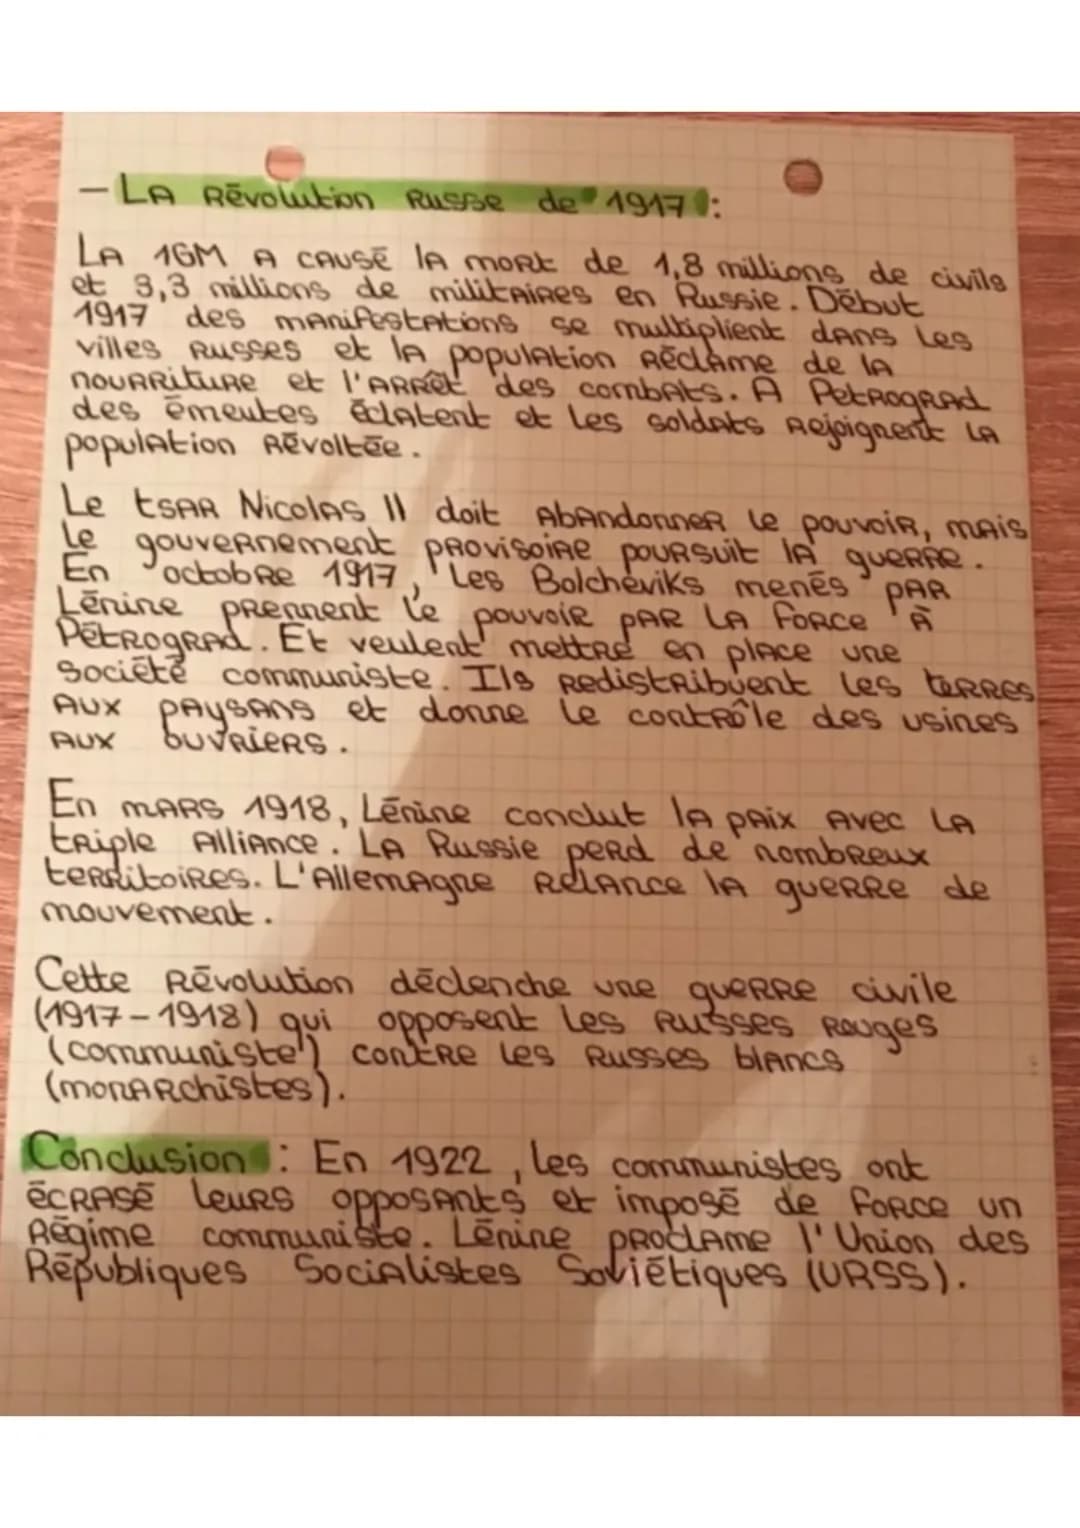 - La Révolution Russe de 1917 :
La 1GM a causé la mort de 1,8 millions de civils
et 3,3 millions de militaires en Russie. Début
1917 des manifestations se multiplient dans les
villes russes et la population réclame de la
nourriture et l'arrêt des combats. A Petrograd
des émeutes éclatent et les soldats rejoignent la
population révoltée.
Le tsar Nicolas II doit abandonner le pouvoir, mais
le gouvernement provisoire poursuit la guerre.
En octobre 1917, les Bolchéviks menés par
Lénine prennent le pouvoir par la force à
Pétrograd. Et veulent mettre en place une
société communiste. Ils redistribuent les terres
aux paysans et donne le contrôle des usines
aux ouvriers.
En mars 1918, Lénine conclut la paix avec la
triple Alliance. La Russie perd de nombreux
territoires. L'Allemagne relance la guerre de
mouvement.
Cette révolution déclenche une guerre civile
(1917-1918) qui opposent les russes rouges
(communiste') contre les russes blancs
(monarchistes).
Conclusion : En 1922, les communistes ont
écrasé leurs opposants et imposé de force un
régime communiste. Lénine proclame l'Union des
Républiques Socialistes Soviétiques (URSS).